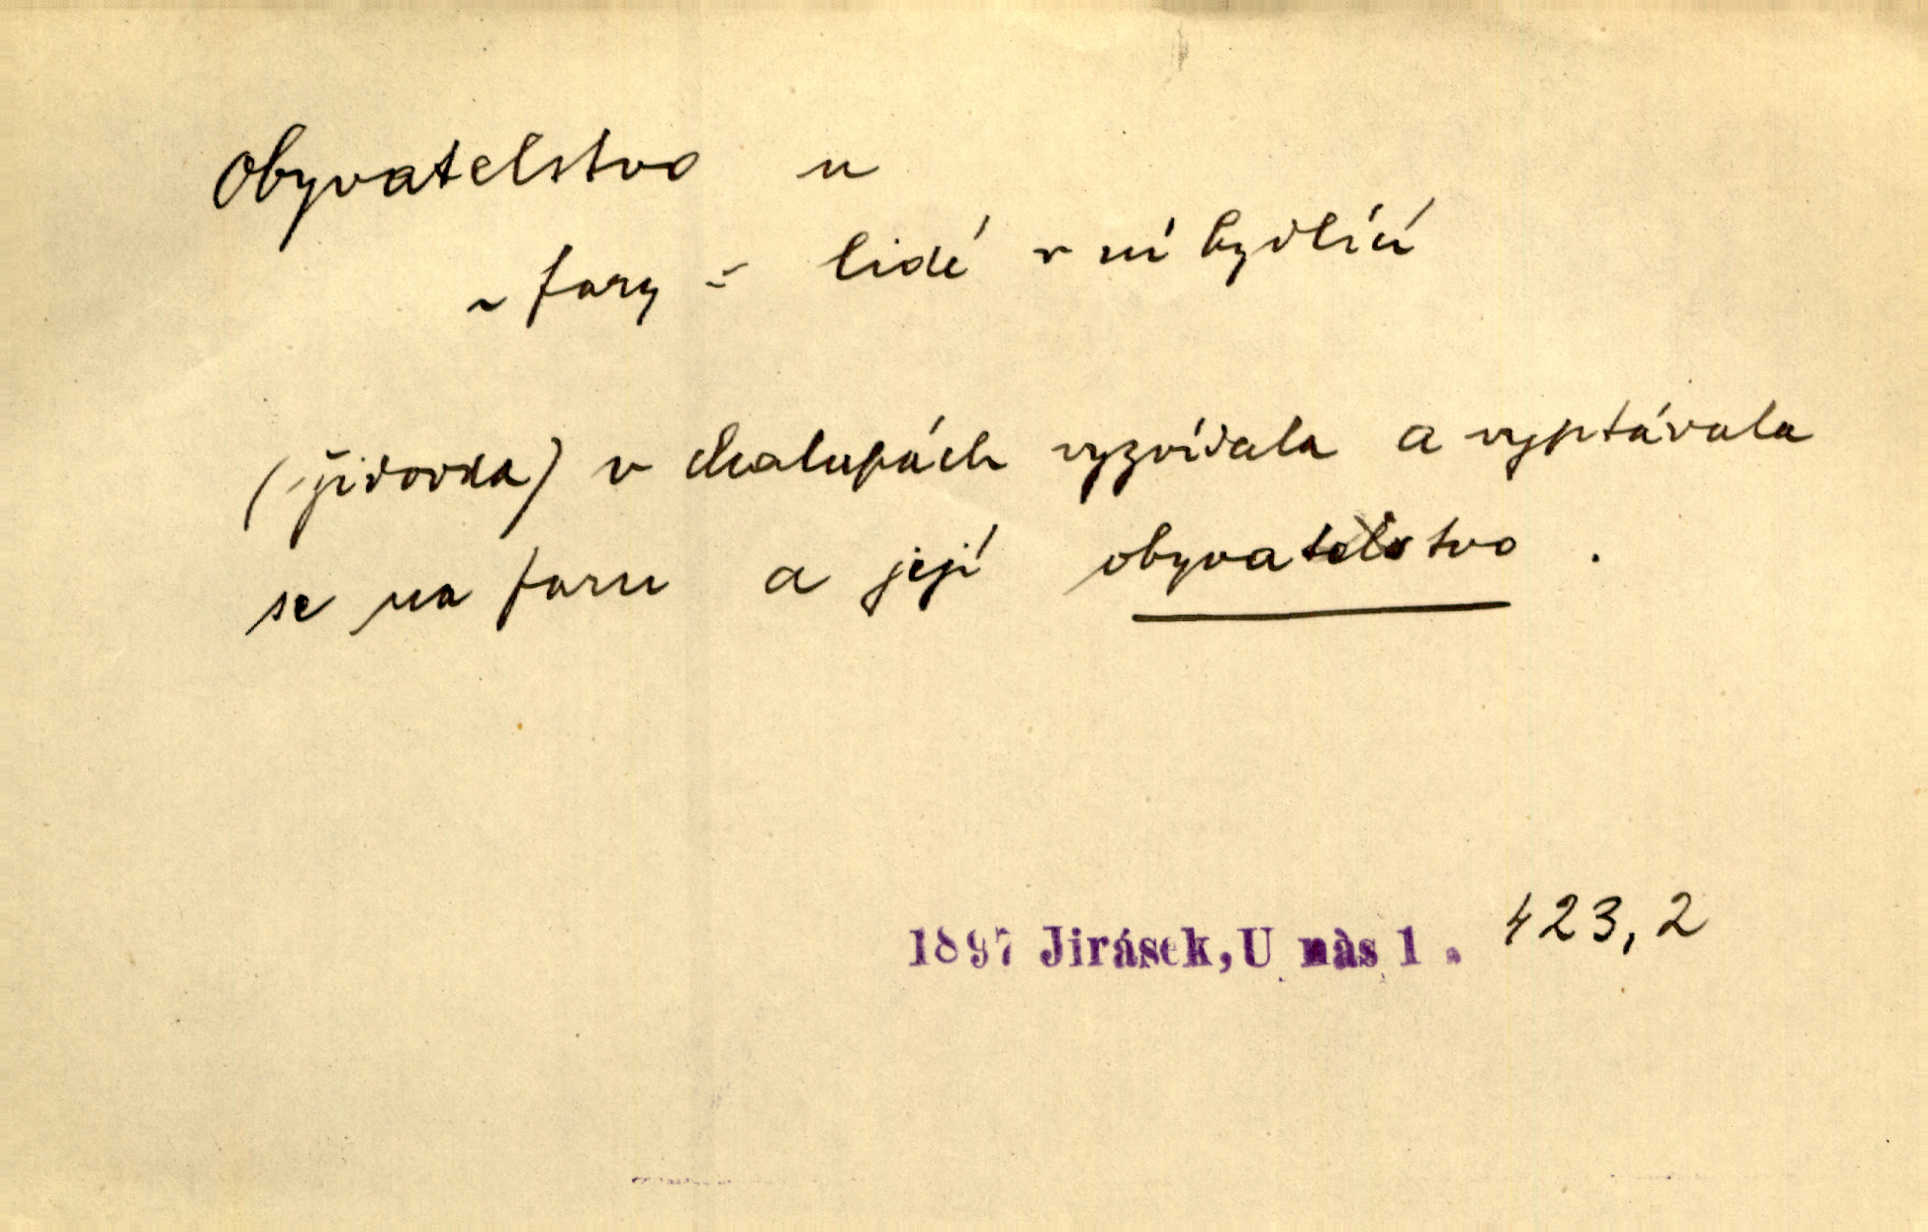 Obyvatelstvo n
~ fary = lidé v ní bydlící
(židovka) v chalupách vyzvídala a vyptávala
se na faru a její obyvatelstvo .
1897 Jirásek, U nàs 1 . 423, 2